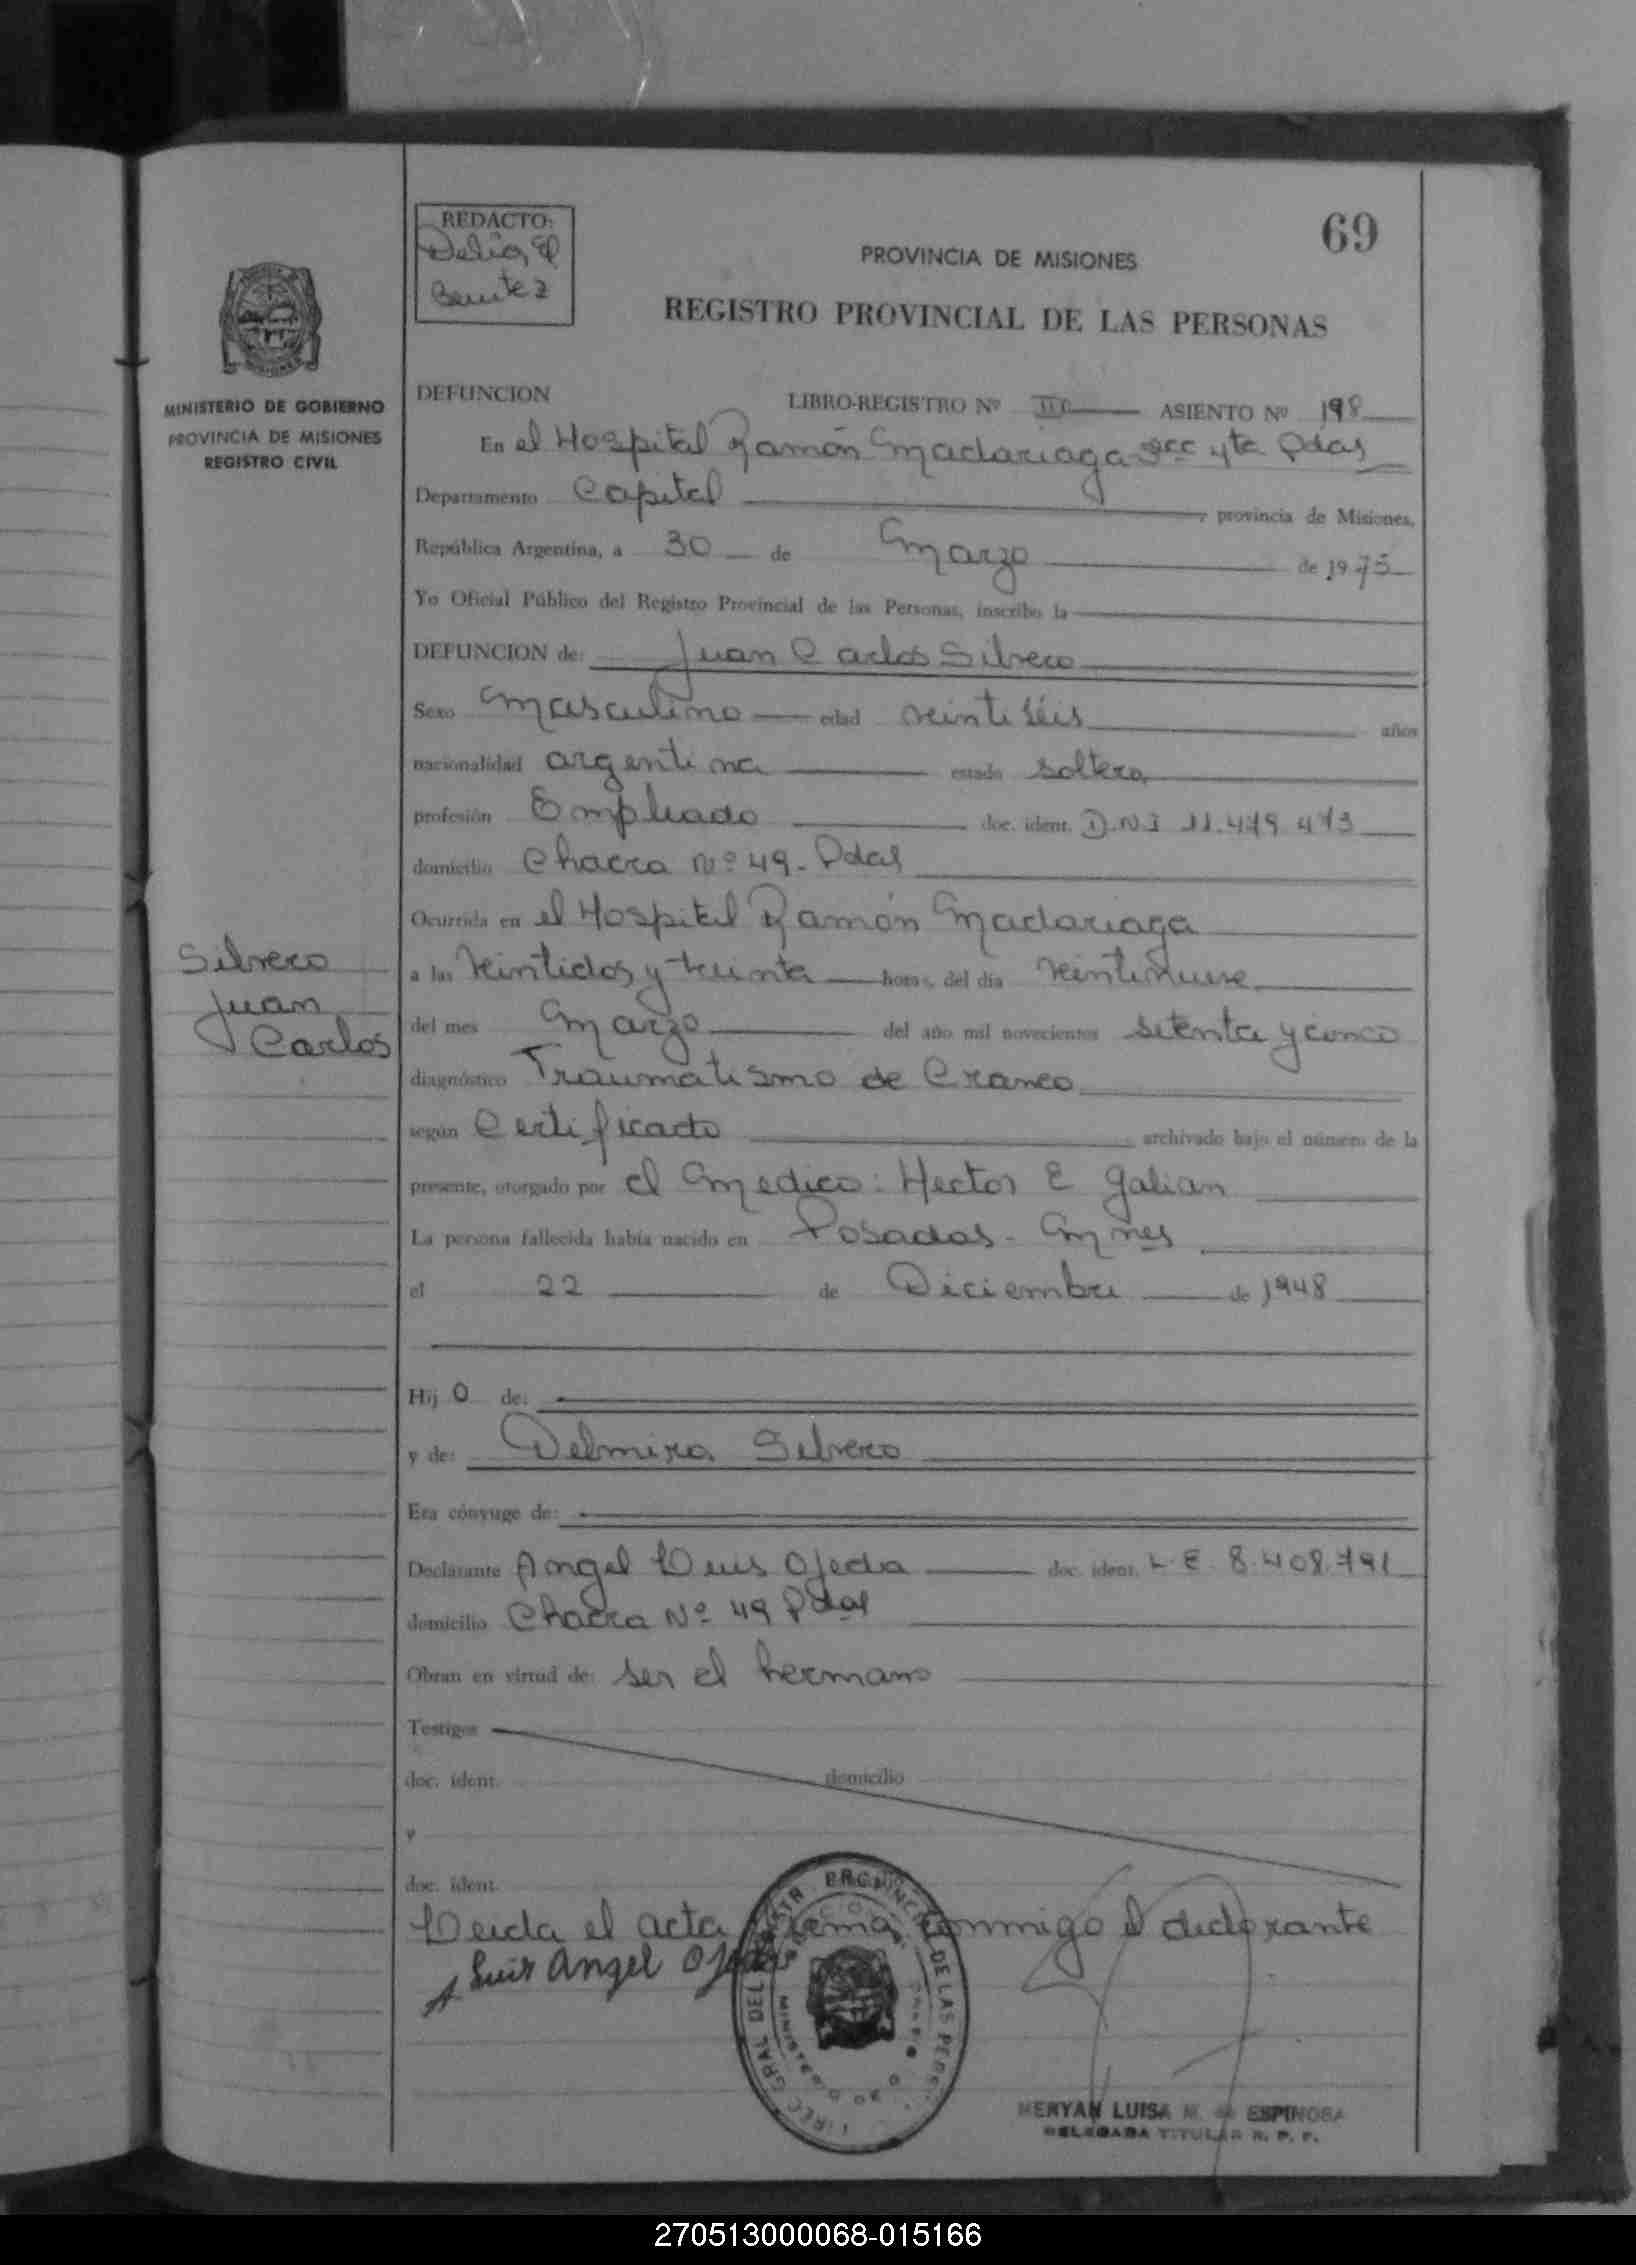 69
REDACTO:
Delia E
Benitez
PROVINCIA DE MISIONES
REGISTRO PROVINCIAL DE LAS PERSONAS
MINISTERIO DE GOBIERNO
PROVINCIA DE MISIONES
REGISTRO CIVIL
DEFUNCION LIBRO-REGISTRO Nº III ASIENTO Nº 198
En el Hospital Ramón Madariaga secc 4ta Pdas
Departamento Capital , provincia de Misiones,
República Argentina, a 30 de Marzo de 1975
Yo Oficial Público del Registro Provincial de las Personas, inscribo la
DEFUNCION de: Juan Carlos Silvero
Sexo Masculino edad veintiséis años
nacionalidad argentina estado soltero
profesión Empleado doc. ident. D.N.I 11.479 473
domicilio Chacra Nº 49 - Pdas
Ocurrida en el Hospital Ramón Madariaga
a las veintidos y treinta horas, del día veintinueve
del mes Marzo del año mil novecientos setenta y cinco
Silvero
Juan
Carlos
diagnóstico Traumatismo de Craneo
según Certificado archivado bajo el número de la
presente, otorgado por el Medico: Hector E Galian
La persona fallecida había nacido en Posadas - Mnes
el 22 de Diciembre de 1948
Hij o de:
y de: Delmira Silvero
Era cónyuge de:
Declarante Angel Luis Ojeda doc. ident. L.E. 8.408.791
domicilio Chacra Nº 49 Pdas
Obran en virtud de: ser el hermano
Testigos
doc. ident. domicilio
y
doc. ident.
Leida el acta firma conmigo el declarante
Luis Angel Ojeda
DIREC GRAL DEL REGISTR. PROVINCIAL DE LAS PERS.
MINISTERIO DE GOBIERNO
MERYAN LUISA M. de ESPINOSA
DELEGADA TITULAR R. P. P.
270513000068-015166